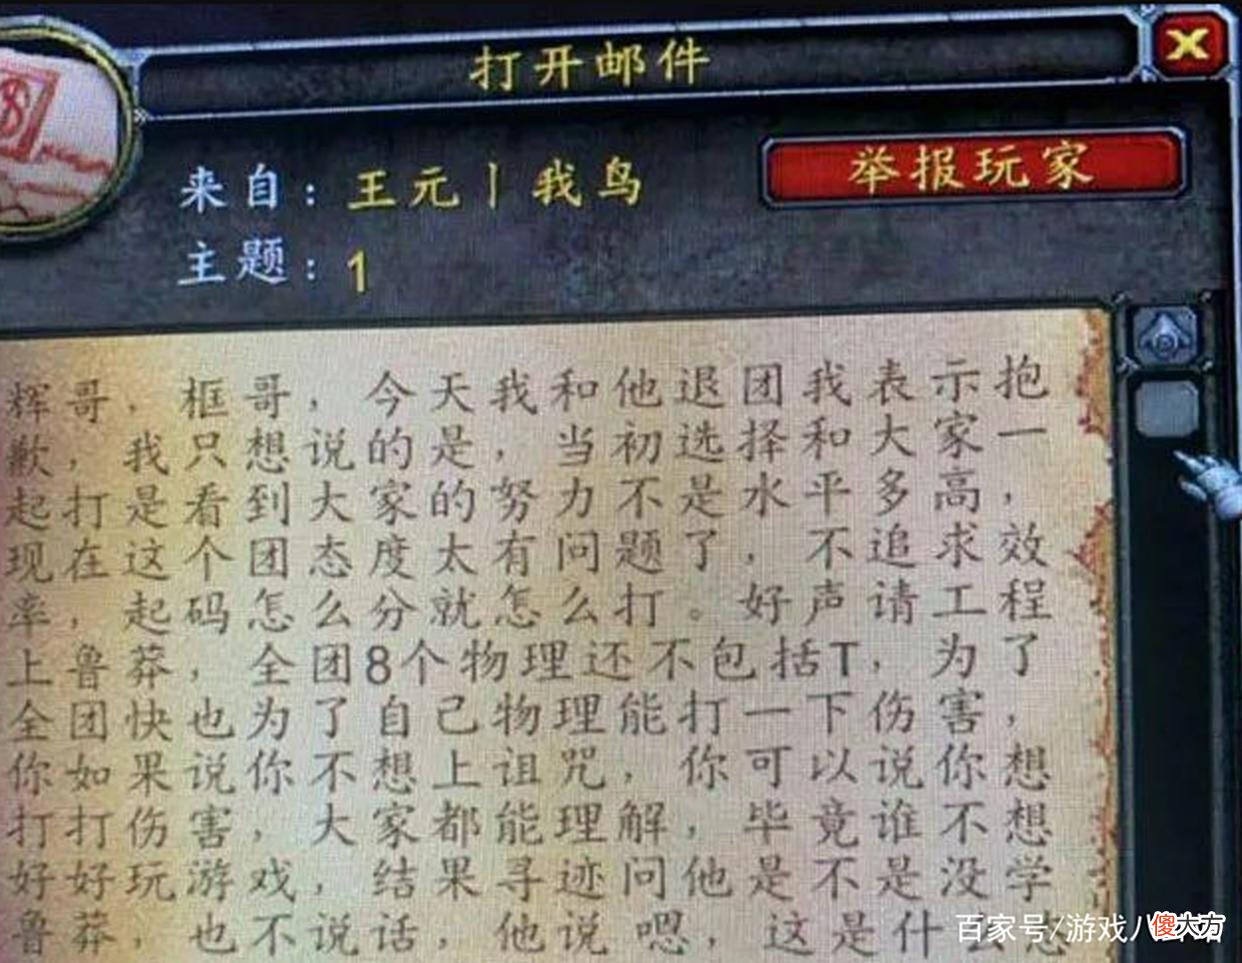 打开邮件
来自：王元丨我鸟
举报玩家
主题：1
辉哥，框哥，今天我和他退团我表示抱
歉，我只想说的是，当初选择和大家一
起打是看到大家的努力不是水平多高，
现在这个团态度太有问题了，不追求效
率，起码怎么分就怎么打。好声请工程
上鲁莽，全团8个物理还不包括T，为了
全团快也为了自己物理能打一下伤害，
你如果说你不想上诅咒，你可以说你想
打打伤害，大家都能理解，毕竟谁不想
好好玩游戏，结果寻迹问他是不是没学
鲁莽，也不说话，他说嗯，这是什么态
百家号/游戏八
傻大方